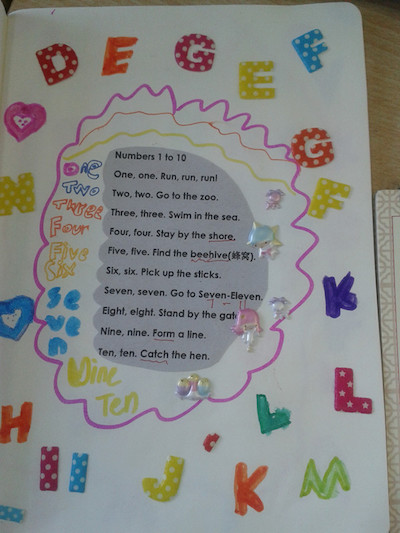 D E G E F
G
N F
Numbers 1 to 10
One, one. Run, run, run!
Two, two. Go to the zoo.
Three, three. Swim in the sea.
Four, four. Stay by the shore.
Five, five. Find the beehive(蜂窝).
Six, six. Pick up the sticks.
Seven, seven. Go to Seven-Eleven.
Eight, eight. Stand by the gate
Nine, nine. Form a line.
Ten, ten. Catch the hen.
One
Two
Three
Four
Five
Six
Seven
Nine
Ten
K
L L
H I I J K M